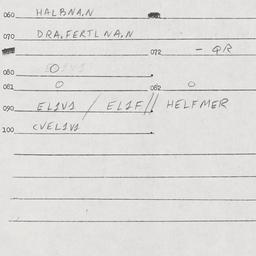 060 HALBNA.N
070 DRA.FERTL NA.N
072 - QR
080 O
081 O 082 O
090 EL1V1 / EL1F // HELFMER
100 CVEL1V1